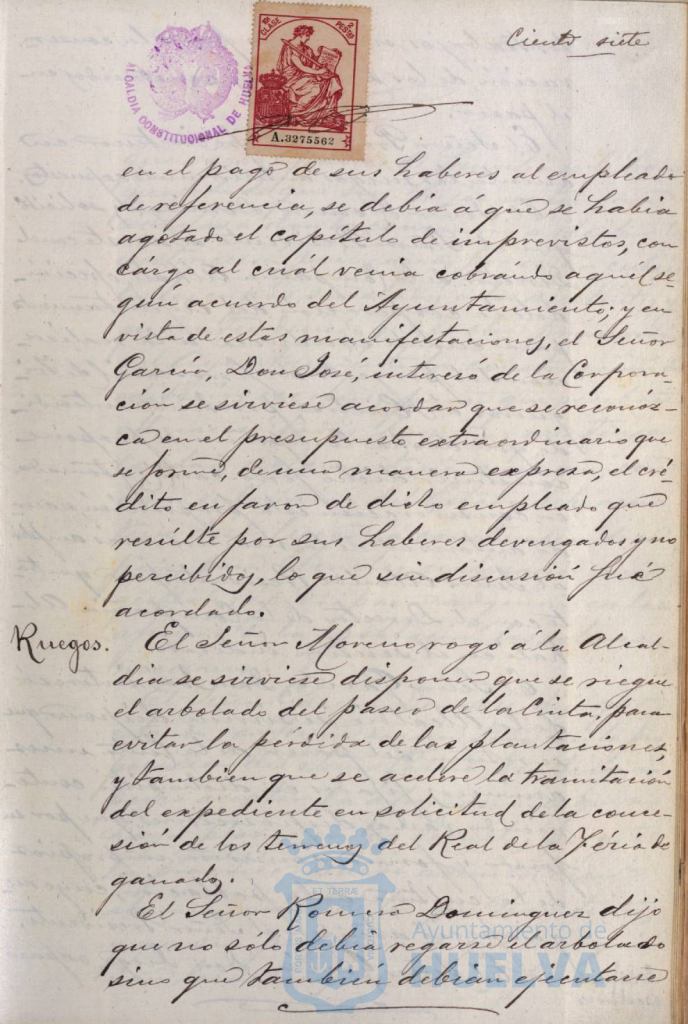 Ciento siete
ALCALDIA CONSTITUCIONAL DE HUELVA
1ª CLASE
2 PESETAS
A.3275562
en el pago de sus haberes al empleado
de referencia, se debia á que se habia
agotado el capítulo de imprevistos, con
cárgo al cuál venia cobrándo aquél se-
gún acuerdo del Ayuntamiento; y en
vista de estas manifestaciones, el Señor
García, Don José, interesó de la Corpora-
ción se sirviese acordar que se reconóz-
ca en el presupuesto extraordinario que
se forme, de una manera expresa, el cré-
dito en favor de dicho empleado que
resúlte por sus haberes devengados y no
percibidos, lo que sin discusión fué
acordado.
Ruegos. El Señor Moreno rogó á la Alcal-
dia se sirviese disponer que se riegue
el arbolado del paseo de la Cinta, para
evitar la pérdida de las plantaciones,
y tambien que se acelere la tramitación
del expediente en solicitud de la conce-
sión de los terrenos del Real de la Féria de
ganados.
El Señor Romero Dominguez dijo
que no sólo debia regarse el arbolado
sino que tambien debian ejecutarse
Ayuntamiento de
HUELVA